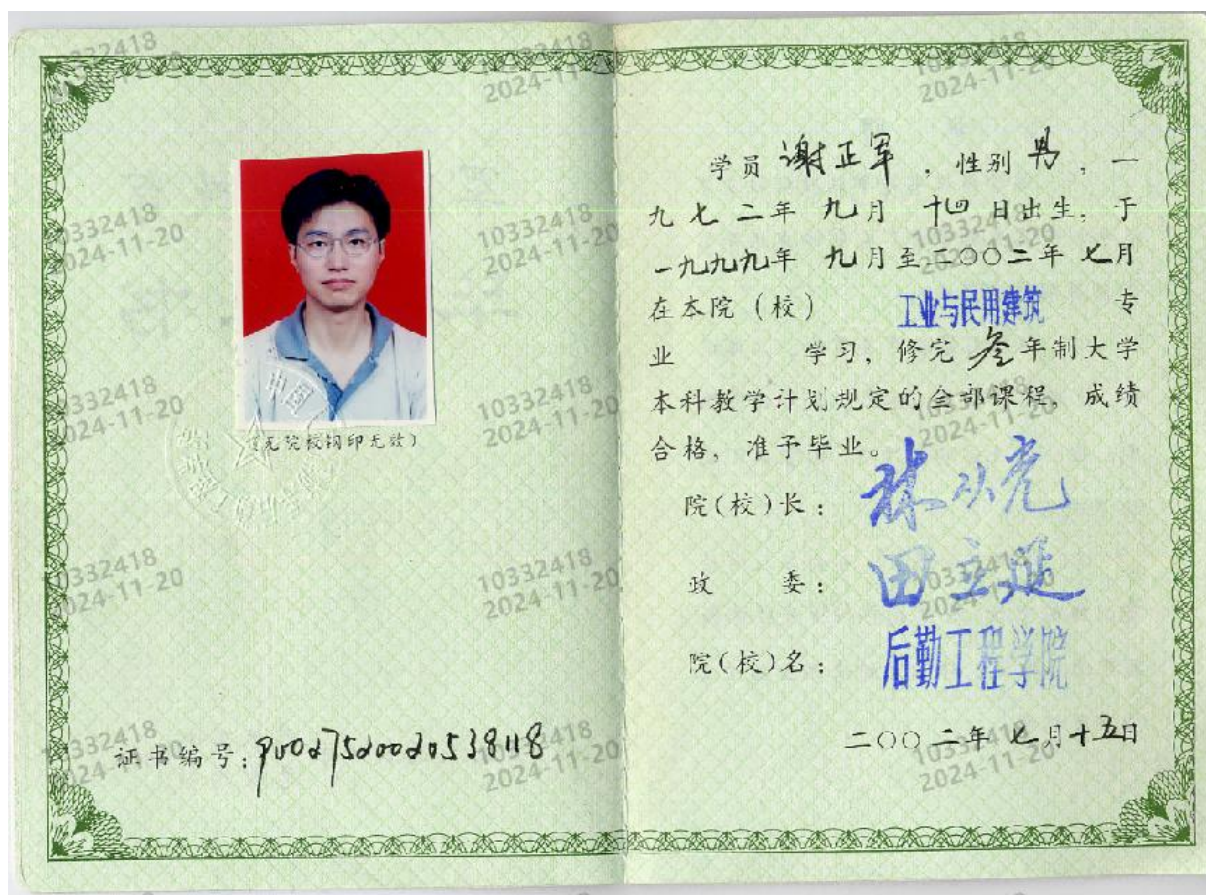 10332418
2024-11-20
(无院校钢印无效)
证书编号:
学员 谢正军 ,性别 男 ,一
九七二年 九月 十四日出生,于
一九九九年 九月至二〇〇二年 七月
在本院(校) 工业与民用建筑 专
业 学习,修完 叁年制大学
本科教学计划规定的全部课程,成绩
合格,准予毕业。
院(校)长:
政 委:
院(校)名: 后勤工程学院
二〇〇二年 七月十五日